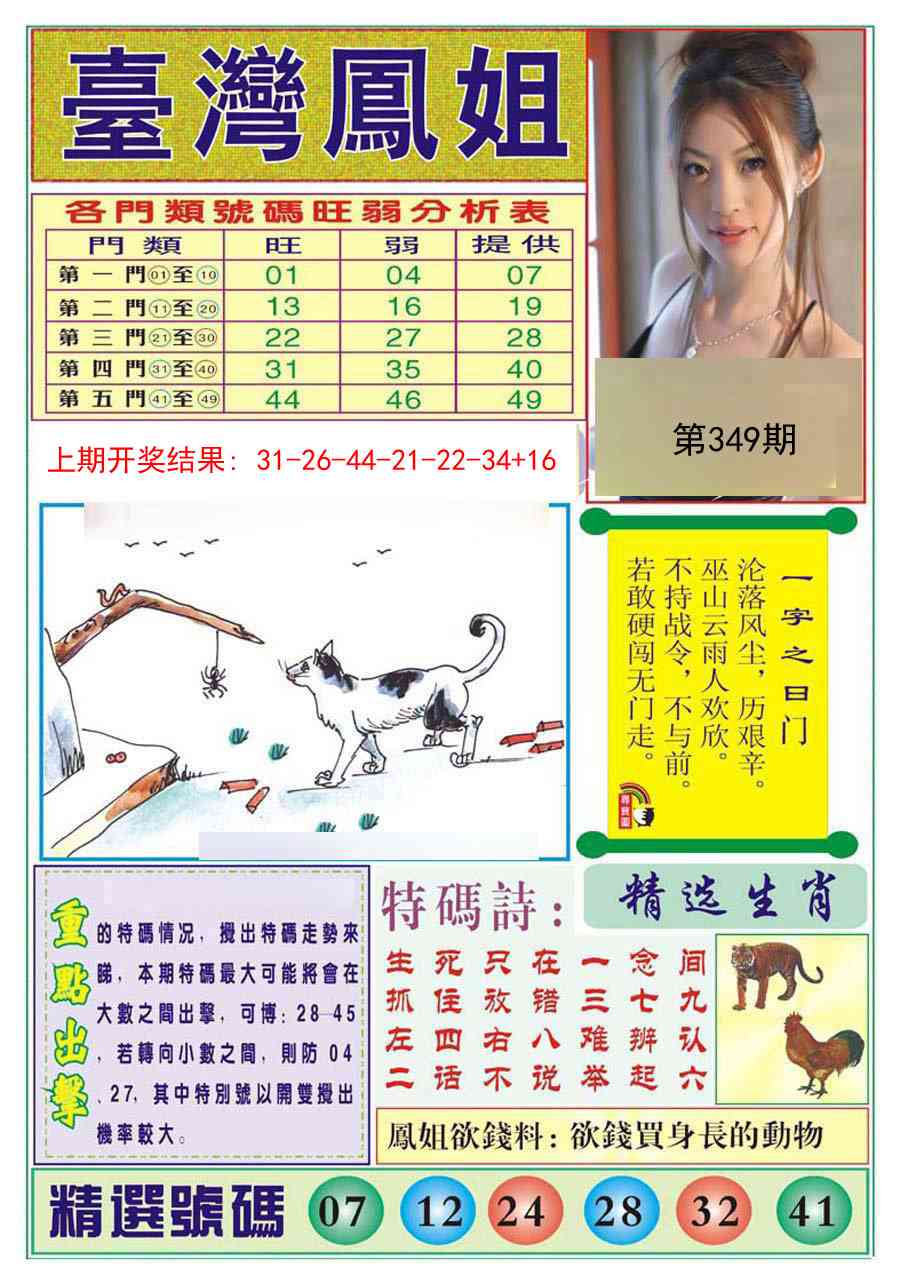 臺灣鳳姐
各門類號碼旺弱分析表
門類 旺 弱 提供
第一門01至10 01 04 07
第二門11至20 13 16 19
第三門21至30 22 27 28
第四門31至40 31 35 40
第五門41至49 44 46 49
第349期
上期开奖结果: 31-26-44-21-22-34+16
一字之曰门
沦落风尘，历艰辛。
巫山云雨人欢欣。
不持战令，不与前。
若敢硬闯无门走。
尋寶圖
重點出擊
的特碼情况，攪出特碼走勢來
睇，本期特碼最大可能將會在
大數之間出擊，可博：28-45
，若轉向小數之間，則防 04
、27，其中特別號以開雙攪出
機率較大。
特碼詩：
生死只在一念间
抓住放错三七九
左四右八难辨认
二话不说举起六
精选生肖
鳳姐欲錢料：欲錢買身長的動物
精選號碼 07 12 24 28 32 41